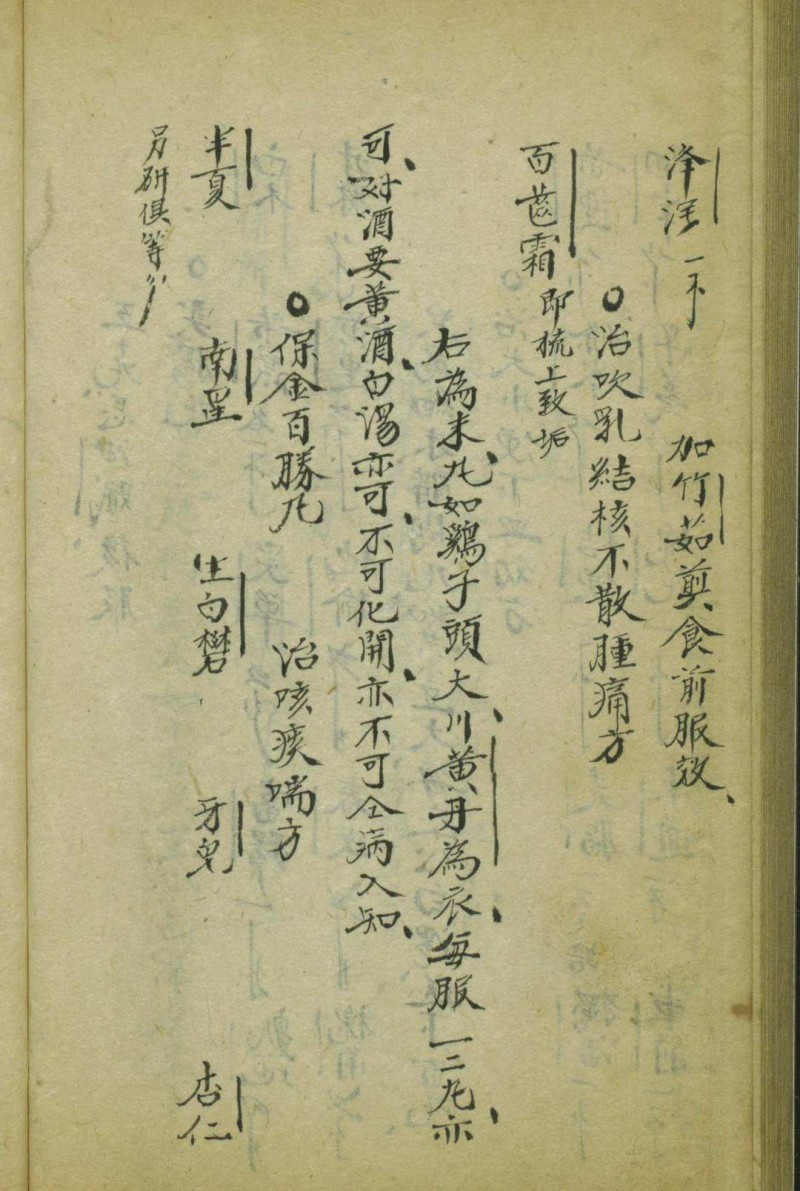 澤泻 一不 加竹茹煎食前服效、
○治吹乳結核不散腫痛方
百齒霜 即梳上致垢
右為末、丸如鷄子頭大、川黄丹為衣、每服一二丸、亦
可、对酒要黄酒、白湯亦可、不可化開、亦不可仝病人知、
○保金百勝丸 治咳痰喘方
半夏 南星 生白礬 牙皂 杏仁
另研俱等分